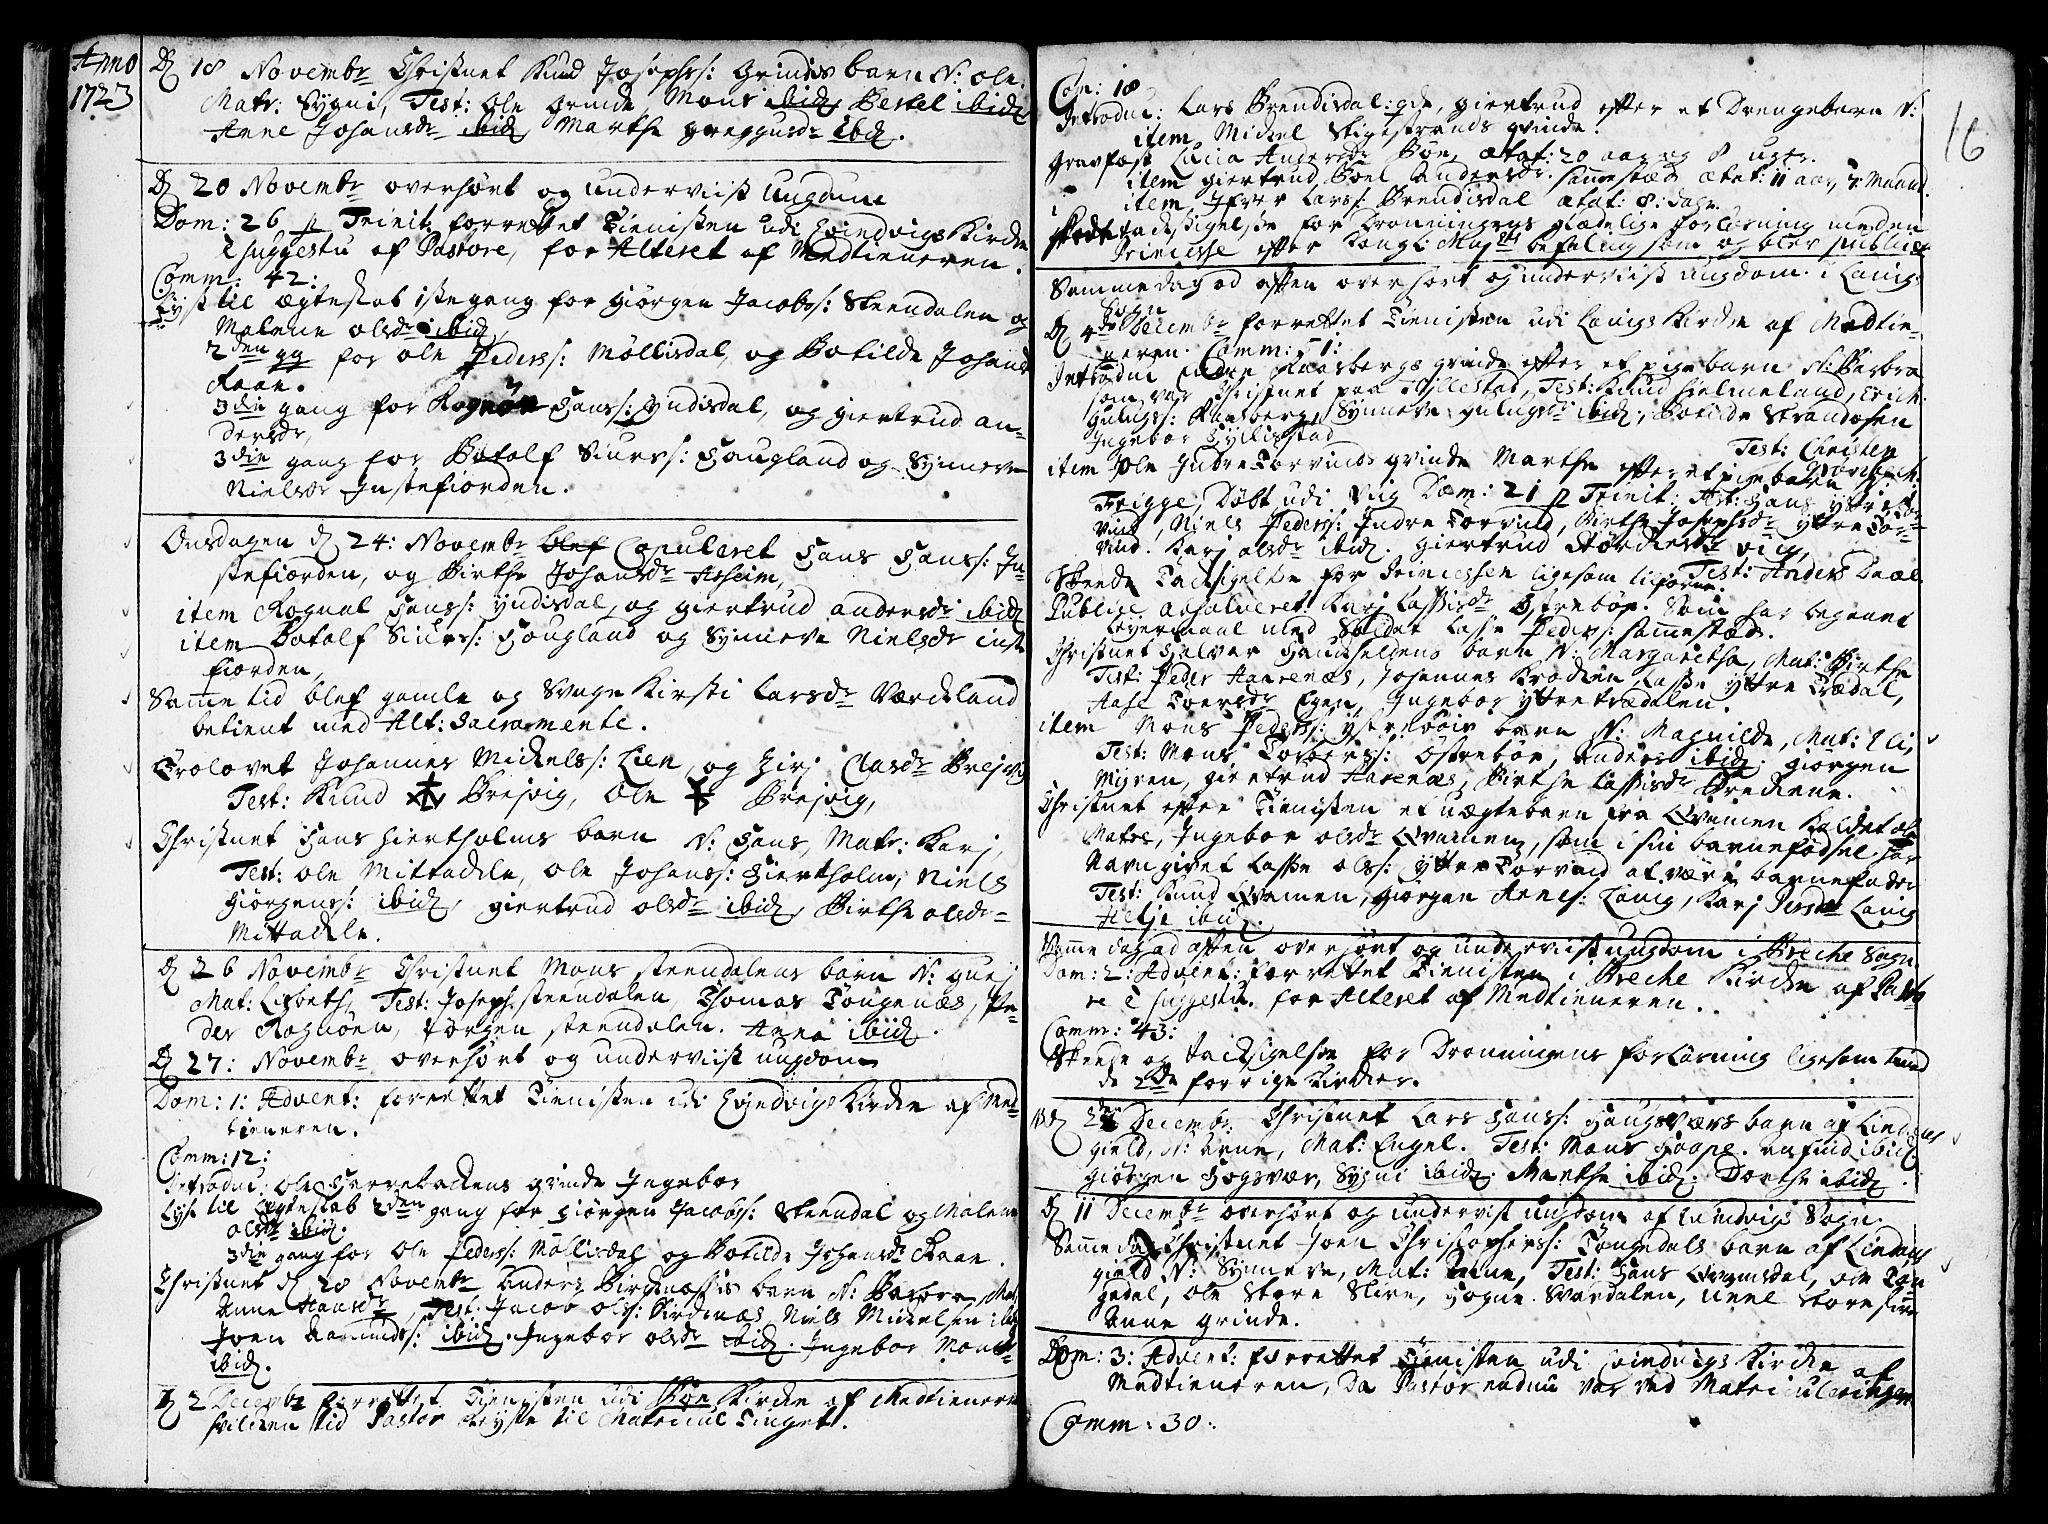 Anno
1723
D 18 Novembr Christnet Knud Josephs: Grindes barn N: Ole.
Matr: Sygni, Test: Ole Grinde, Mons ibid, Bertel ibid
Anne Johansdr ibid, Marthe ibid.
D 20 Novembr overhørt og underviist Ungdum
Dom: 26 p Trinit: forrettet Tienisten udi Evindvigs Kirche
è suggestu af Pastore, for Alteret af Medtieneren.
Comm: 42:
Lyst til ægteskab iste gang for Giørgen Jacobs: Steendalen og
Malene olsdr ibid,
2den gg for ole Peders: Møllisdal, og Botilde Johansdr
Raan.
3die gang for Hans: Yndisdal, og giertrud an-
dersdr,
3die gang for Botolf Siurs: Hougland og Synneve
Nielsdr Instefiorden.
Onsdagen d 24: Novembr blef Copuleret Hans Hans: In-
stefiorden, og Birthe Johansdr Asheim,
item Rognal Hans: Yndisdal, og giertrud andersdr ibid
item Botolf Siurs: Hougland og Synneve Nielsdr inste
fiorden,
Samme tid blef gamle og Svage Kirsti Larsdr Værkland
betient med Alt: Sacramente.
Trolovet Johannes Mickels: Lien, og Clasdr Brejvig
Test: Knud Brejvig, Ole Brejvig,
Christnet Hans Hiertholms barn N: Hans, Matr: Karj,
Test: Ole Mittadele, Ole Johans: Hiertholm, Niels
Giørgens: ibid, giertrud olsdr ibid, Birthe olsdr
Mittadele.
D 26 Novembr Christnet Mons Steendalens barn N:
Mat: Lisbeth, Test: Joseph Steendalen, Thomas Tongenæs, Pe-
der Rognøen, Jørgen Steendalen. Anna ibid.
D 27: Novembr overhørt og underviist ungdom
Dom: 1: Advent: forrettet Tienisten udi Evindvigs Kirche af Med-
tieneren.
Comm: 12:
Introduc: Ole Herretackens qvinde Ingebor
Lyst til Egteskab 2den gang for Giørgen Jacobs: Steendal og Malene
olsdr ibid.
3die gang for Ole Peders: Møllisdal og Botilde Johansdr Raan.
Christnet d 28 Novembr Anders Birchnæssis barn N: Barbra, Mat:
Anne Hansdr, Test: Jacob ols: Birchnæs, Niels Mickelsen ibid
Joen Aamunds: ibid. Ingebor olsdr ibid. Ingebor Monsdr
ibid.
D 2 Decembr forrettet Tienisten udi Bøe Kirche af Medtieneren
hvilcken tid Pastor reyste til Matricul Tinget.
16
Com: 18
Introduc: Lars Brendisdal: qde, giertrud efter et Drengebarn N:
item Mickel Stigestrands qvinde.
Gravfæst Lucia Andersdr Bøe, ætat: 20 aar og 8 uger.
item giertrud Andersdr sammestæd ætat: 11 aar, 7 Maaned.
item Lars: Brendisdal ætat: 8: dage.
Skede tacksigelse for Dronningens glædelige forløsning med en
Princesse efter Kongl: Maysts befaling som og blev publiceret
Samme dag ad aften overhørt og underviist ungdom i Lavigs
Sogn
D 4de Decembr forrettet Tienisten udi Lavigs Kirche af Medtie-
neren. Comm: 51:
Introduc Raasbergs qvinde efter et pige barn N: Barbra
som var Christnet paa Hyllestad, Test: Knud Hielmeland, Erich
Raasberg, Synneve ibid, Botilde Strandosen
Ingebor Hyllestad
item Ole Indre Torvunds qvinde Marthe efter et pige barn
Test: Christen
Trigge, Døbt udi Viig Dom: 21 p Trinit: Test: Hans yttre Tor-
vund, Niels Peders: Indre Torvund, Birthe Josephsdr yttre Tor-
vund. Karj olsdr ibid. giertrud viig,
Skeede Tacksigelse for Princessen ligesom tilforne. Test: Anders Daal
Publice absolveret Karj Lassisdr Østrebøe. Som har begaaet
Leyermaal med Soldat Lasse Peders: sammestæds.
Christnet Halvor barn N: Margaretha, Mat: Birthe
Test: Peder Haarenæs, Johannes Krodien, Lasse yttre Trædal,
Aase Toersdr Egen, Ingebor yttre trædalen.
item Mons Peders: barn N: Magnilde, Mat: Eli,
Test: Mons Torbers: Østrebøe, Anders ibid. Giørgen
Myren, giertrud Haarenæs, Birthe Lassisdr Brediene.
Christnet efter Tienisten et uægte barn fra Qvamen kaldet Ole
Matre, Ingebor olsdr Qvamen, som i sin barnefødsel har
Navngivet Lasse ols: yttre Torvund at være barnefader
Test: Knud Qvamen, Giørgen Arnes: Lavig, Karj Persdr Lavig
ibid.
Samme dag ad aften overhørt og underviist ungdom i Breche Sogn
Dom: 2: Advent: forrettet Tienisten i Breche Kirche af Pasto
re è suggestu. for Alteret af Medtieneren.
Comm: 43:
Skeede og Tacksigelse for Dronningens forløsning ligesom ved
de 2de forrige kircher.
D Decembr: Christnet Lars Hans: Haugsværs barn af Lindaas
gield, N: Arne, Mat: Engel. Test: Mons Hoope. ibid
Giørgen Hogsvær, Sygni ibid. Marthe ibid. Dorthe ibid.
D 11 Decembr overhørt og undervist ungdom af Evindvigs Sogn.
Samme dag Christnet Joen Christophers: Tongedals barn af Lindaas
gield N: Synneve, Mat: Anne, Test: Hans Qvamsdal, ole Ton
gedal, Ole Store Slire, Hogne Svardalen, Unne Store slire
Anne grinde.
Dom: 3: Advent: forrettet Tienisten udi Evindvigs Kirche af
Medtieneren, Da Pastor endnu var ved Matriculeringen
Comm: 30: